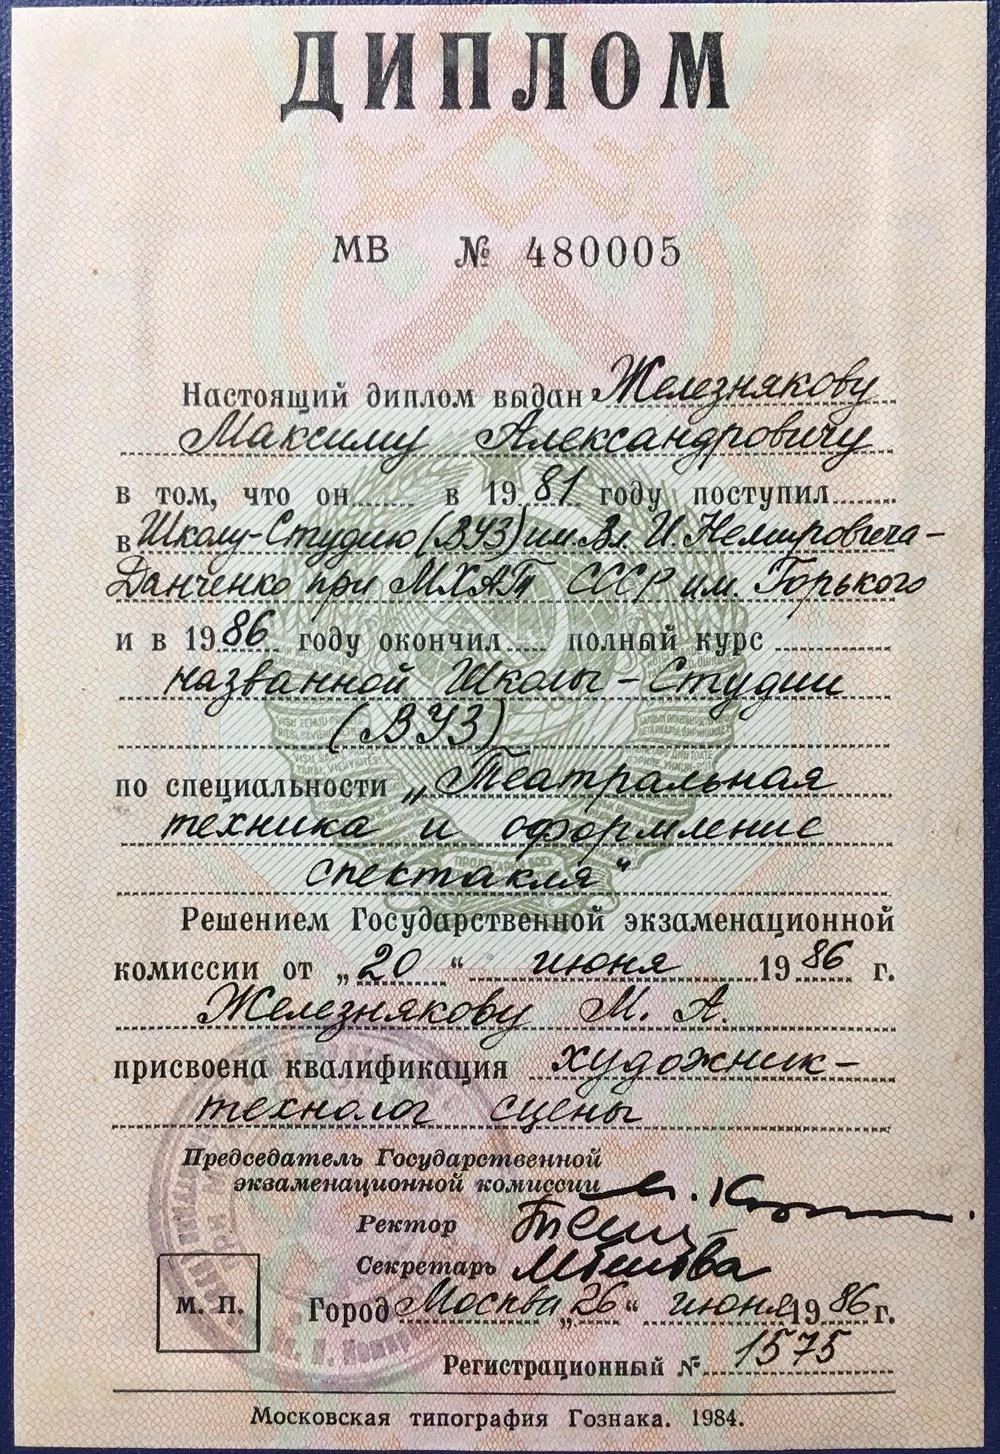 ДИПЛОМ
МВ № 480005
Настоящий диплом выдан Железнякову
Максиму Александровичу
в том, что он в 1981 году поступил
в Школу-Студию (ВУЗ) им. Вл. И. Немировича-
Данченко при МХАТ СССР им. Горького
и в 1986 году окончил полный курс
названной Школы-Студии
(ВУЗ)
по специальности „Театральная
техника и оформление
спектакля"
Решением Государственной экзаменационной
комиссии от „20“ июня 1986 г.
Железнякову М. А.
присвоена квалификация художник-
технолог сцены
Председатель Государственной
экзаменационной комиссии
Ректор
Секретарь
М. П. Город Москва „26“ июня 1986 г.
Регистрационный № 1575
Московская типография Гознака. 1984.